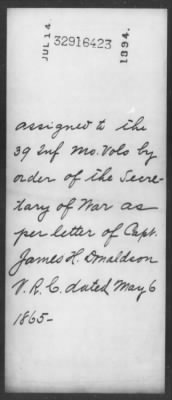 JUL 14 32916423 1894.
assigned to the
39 Inf Mo. Vols by
order of the Secre-
tary of War as
per letter of Capt.
James H. Donaldson
V. R. C. dated May 6
1865-